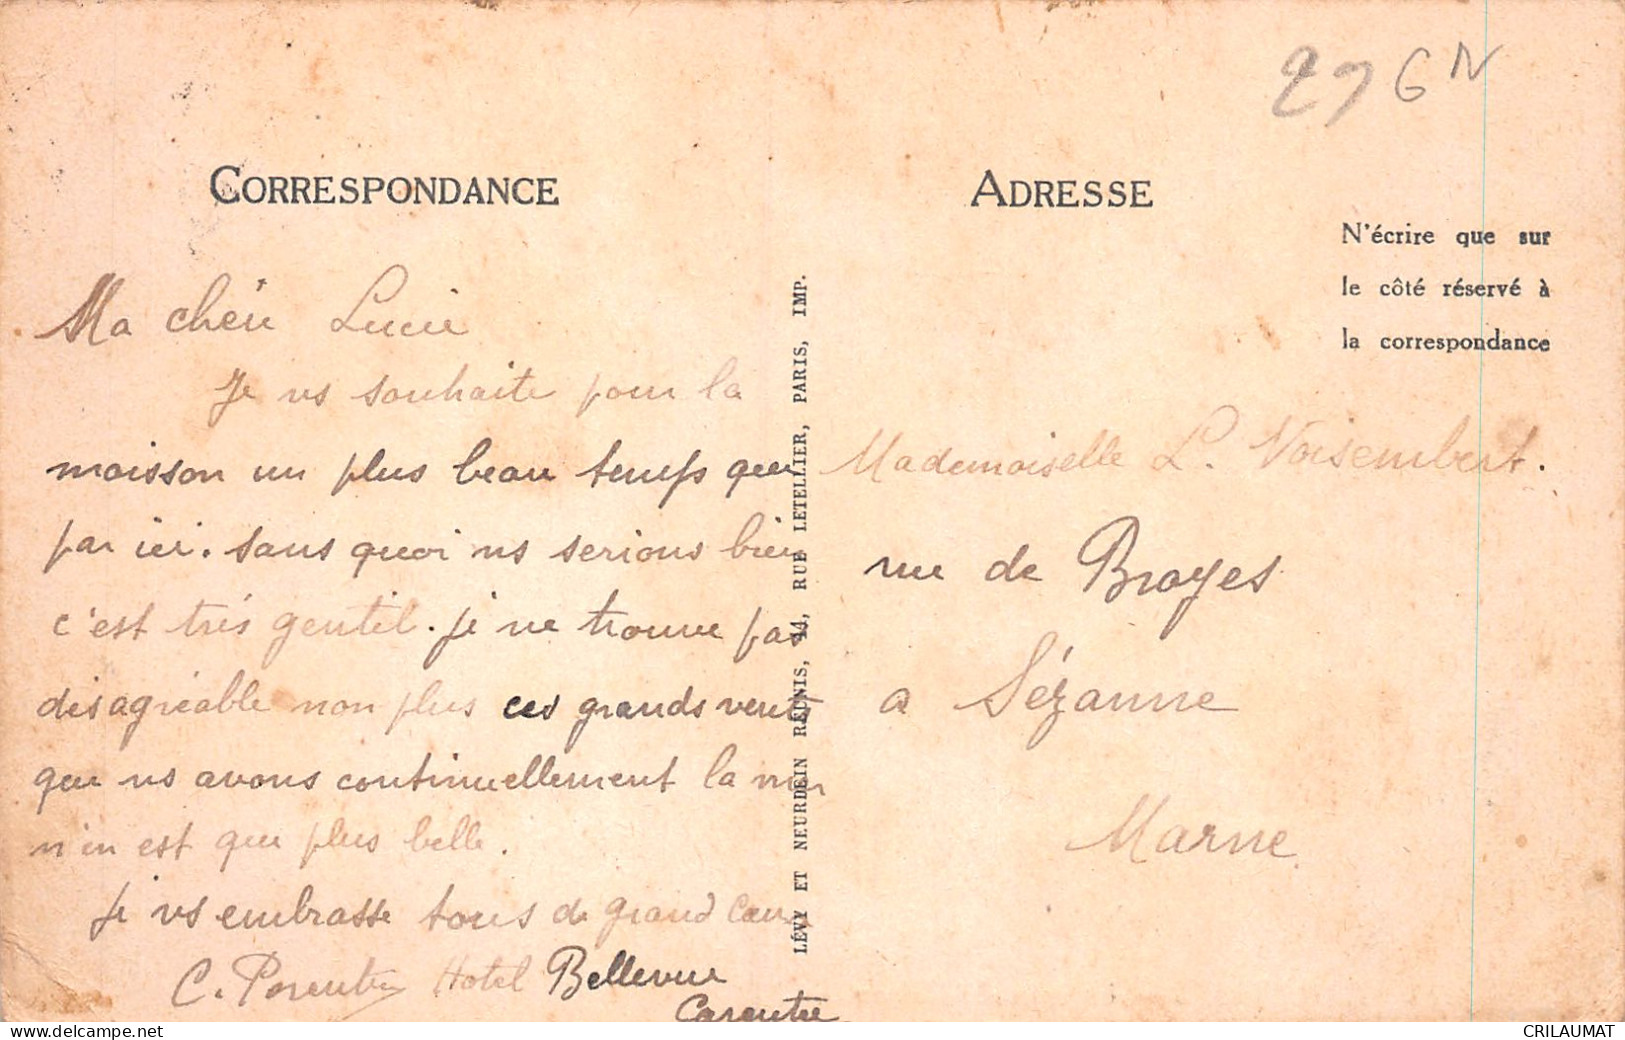 296 N
CORRESPONDANCE
Ma chérie Lucie
Je vs souhaite pour la
moisson un plus beau temps que
par ici. sans quoi ns serions bien
c'est très gentil. je ne trouve pas
désagréable non plus ces grands vents
que ns avons continuellement la mer
n'en est que plus belle.
Je vs embrasse tous de grand cœur
C. Hotel Bellevue
Carentec
LÉVY ET NEURDEIN RÉUNIS, 44, RUE LETELLIER, PARIS, IMP.
ADRESSE
N'écrire que sur
le côté réservé à
la correspondance
Mademoiselle L. Voisembert.
rue de Broyes
a Sézanne
Marne
CRILAUMAT